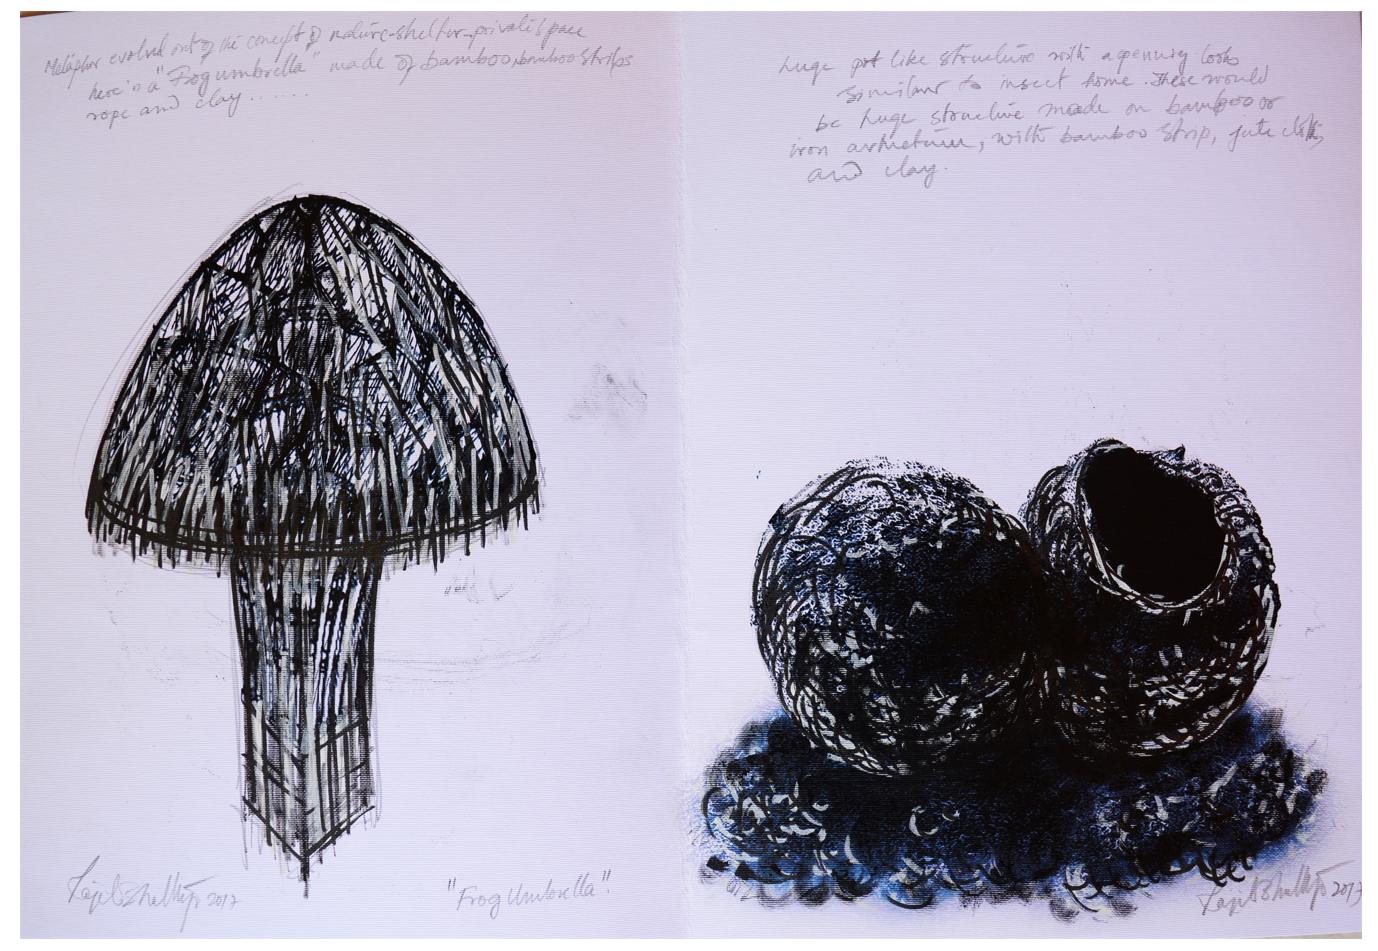 Metaphor evolved out of the concept of nature-shelter-private space
here is a "Frog umbrella" made of bamboo, bamboo strips
rope and clay.......
huge pot like structure with a openning looks
similar to insect home. These would
be huge structure made on bamboo or
iron armature, with bamboo strip, jute cloth,
and clay.
2017
"Frog Umbrella".
2017